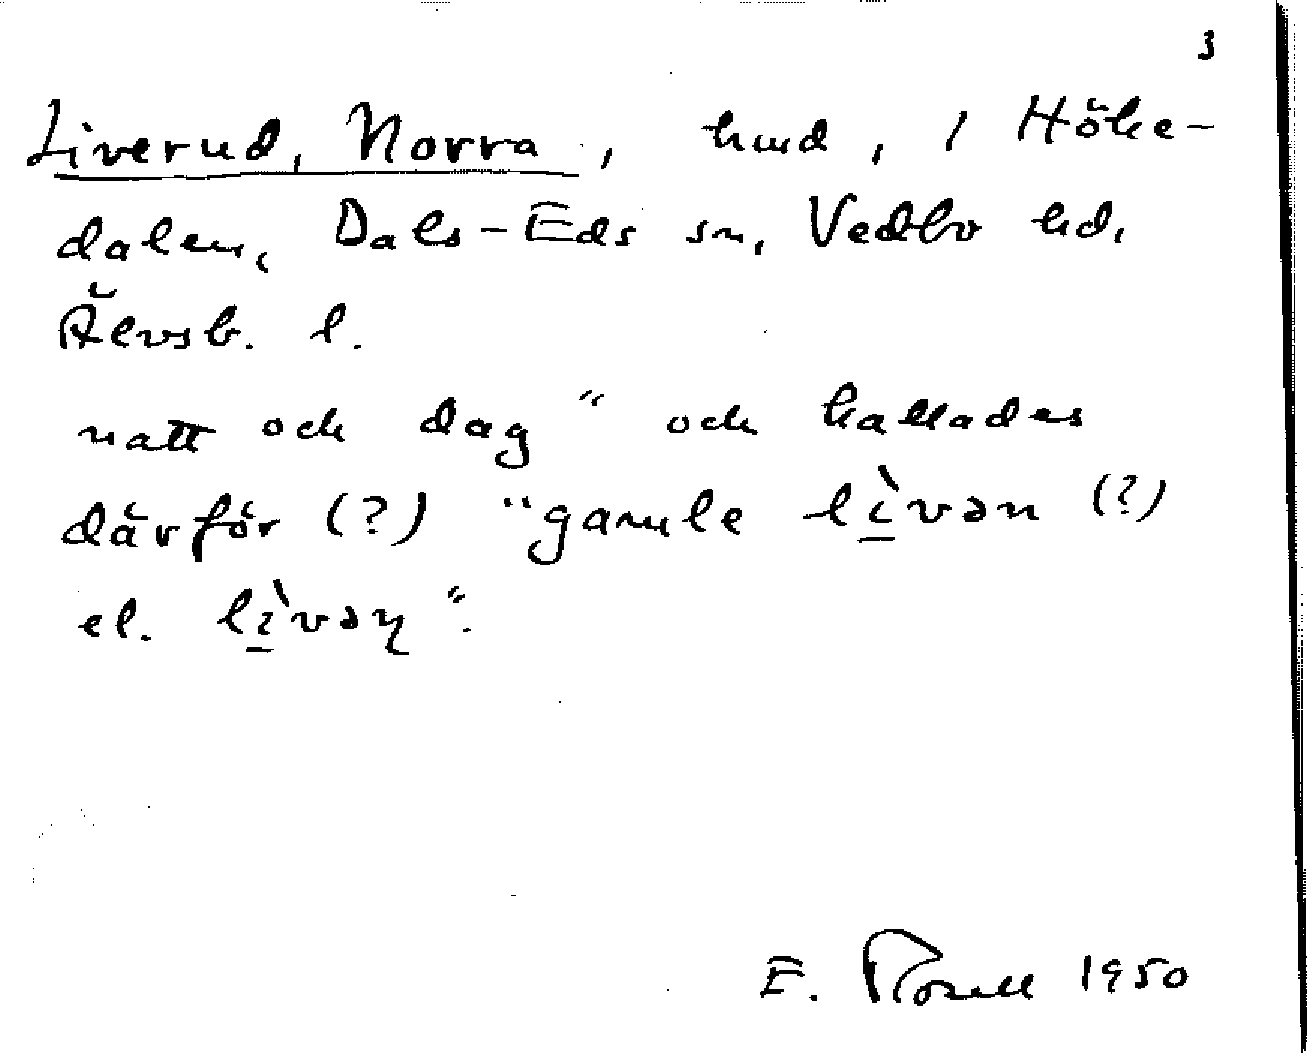 3
Liverud, Norra, hmd, 1 Höke-
dalen, Dals-Eds sn, Vedbo hd.
Älvsb. l.
natt och dag" och kallades
därför (?) "gamle lìvən (?)
el. lìvəɳ".
E. Rosell 1950